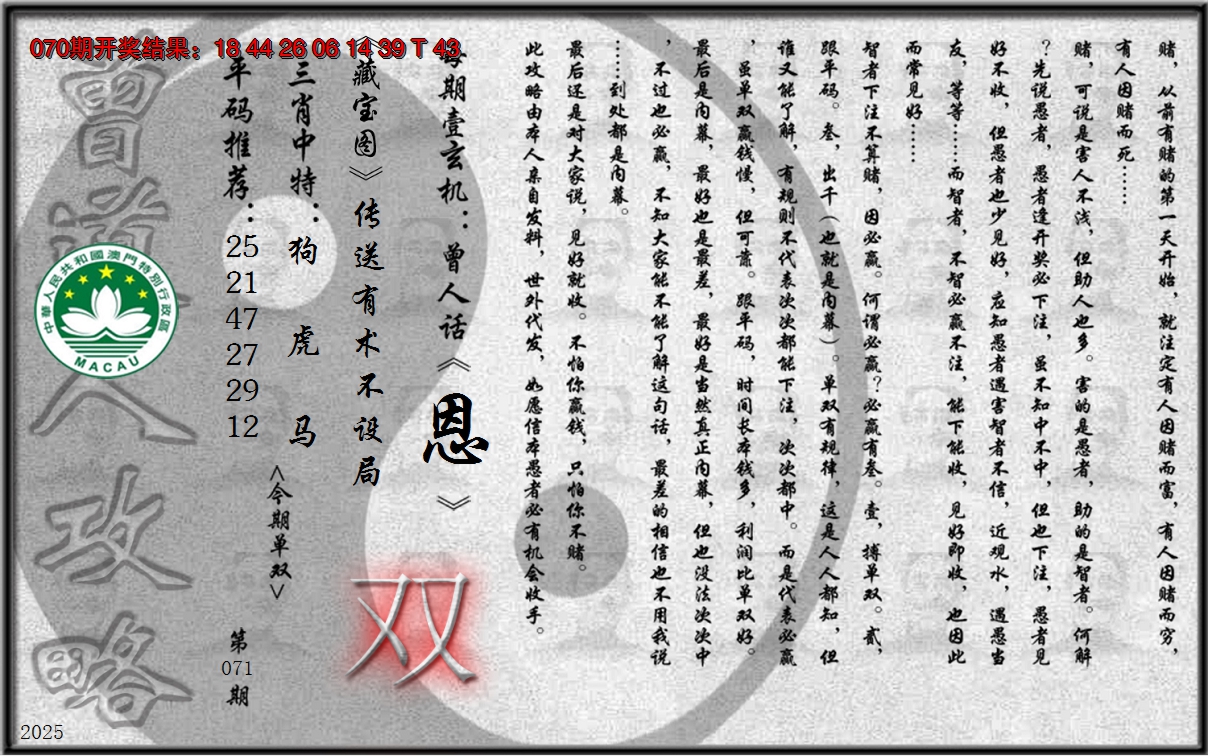 070期开奖结果：18 44 26 06 14 39 T 43
赌，从前有赌的第一天开始，就注定有人因赌而富，有人因赌而穷，
有人因赌而死……
赌，可说是害人不浅，但助人也多。害的是愚者，助的是智者。何解
？先说愚者，愚者逢开奖必下注，虽不知中不中，但也下注，愚者见
好不收，但愚者也少见好，应知愚者遇害智者不信，近观水，遇愚当
友，等等……而智者，不智必赢不注，能下能收，见好即收，也因此
而常见好……
智者下注不算赌，因必赢。何谓必赢？必赢有叁。壹，搏单双。贰，
跟平码。叁，出千（也就是内幕）。单双有规律，这是人人都知，但
谁又能了解，有规则不代表次次都能下注，次次都中。而是代表必赢
，虽单双赢钱慢，但可靠。跟平码，时间长本钱多，利润比单双好。
最后是内幕，最好也是最差，最好是当然真正内幕，但也没法次次中
，不过也必赢，不知大家能不能了解这句话，最差的相信也不用我说
……到处都是内幕。
最后还是对大家说，见好就收。不怕你赢钱，只怕你不赌。
此攻略由本人亲自发料，世外代发，如愿信本愚者必有机会收手。
每期壹玄机：曾人话《恩》
《藏宝图》传送有术不设局
三肖中特：狗 虎 马
<今期单双>
双
平码推荐：25 21 47 27 29 12
第071期
曾道人攻略
中華人民共和國澳門特別行政區
MACAU
2025